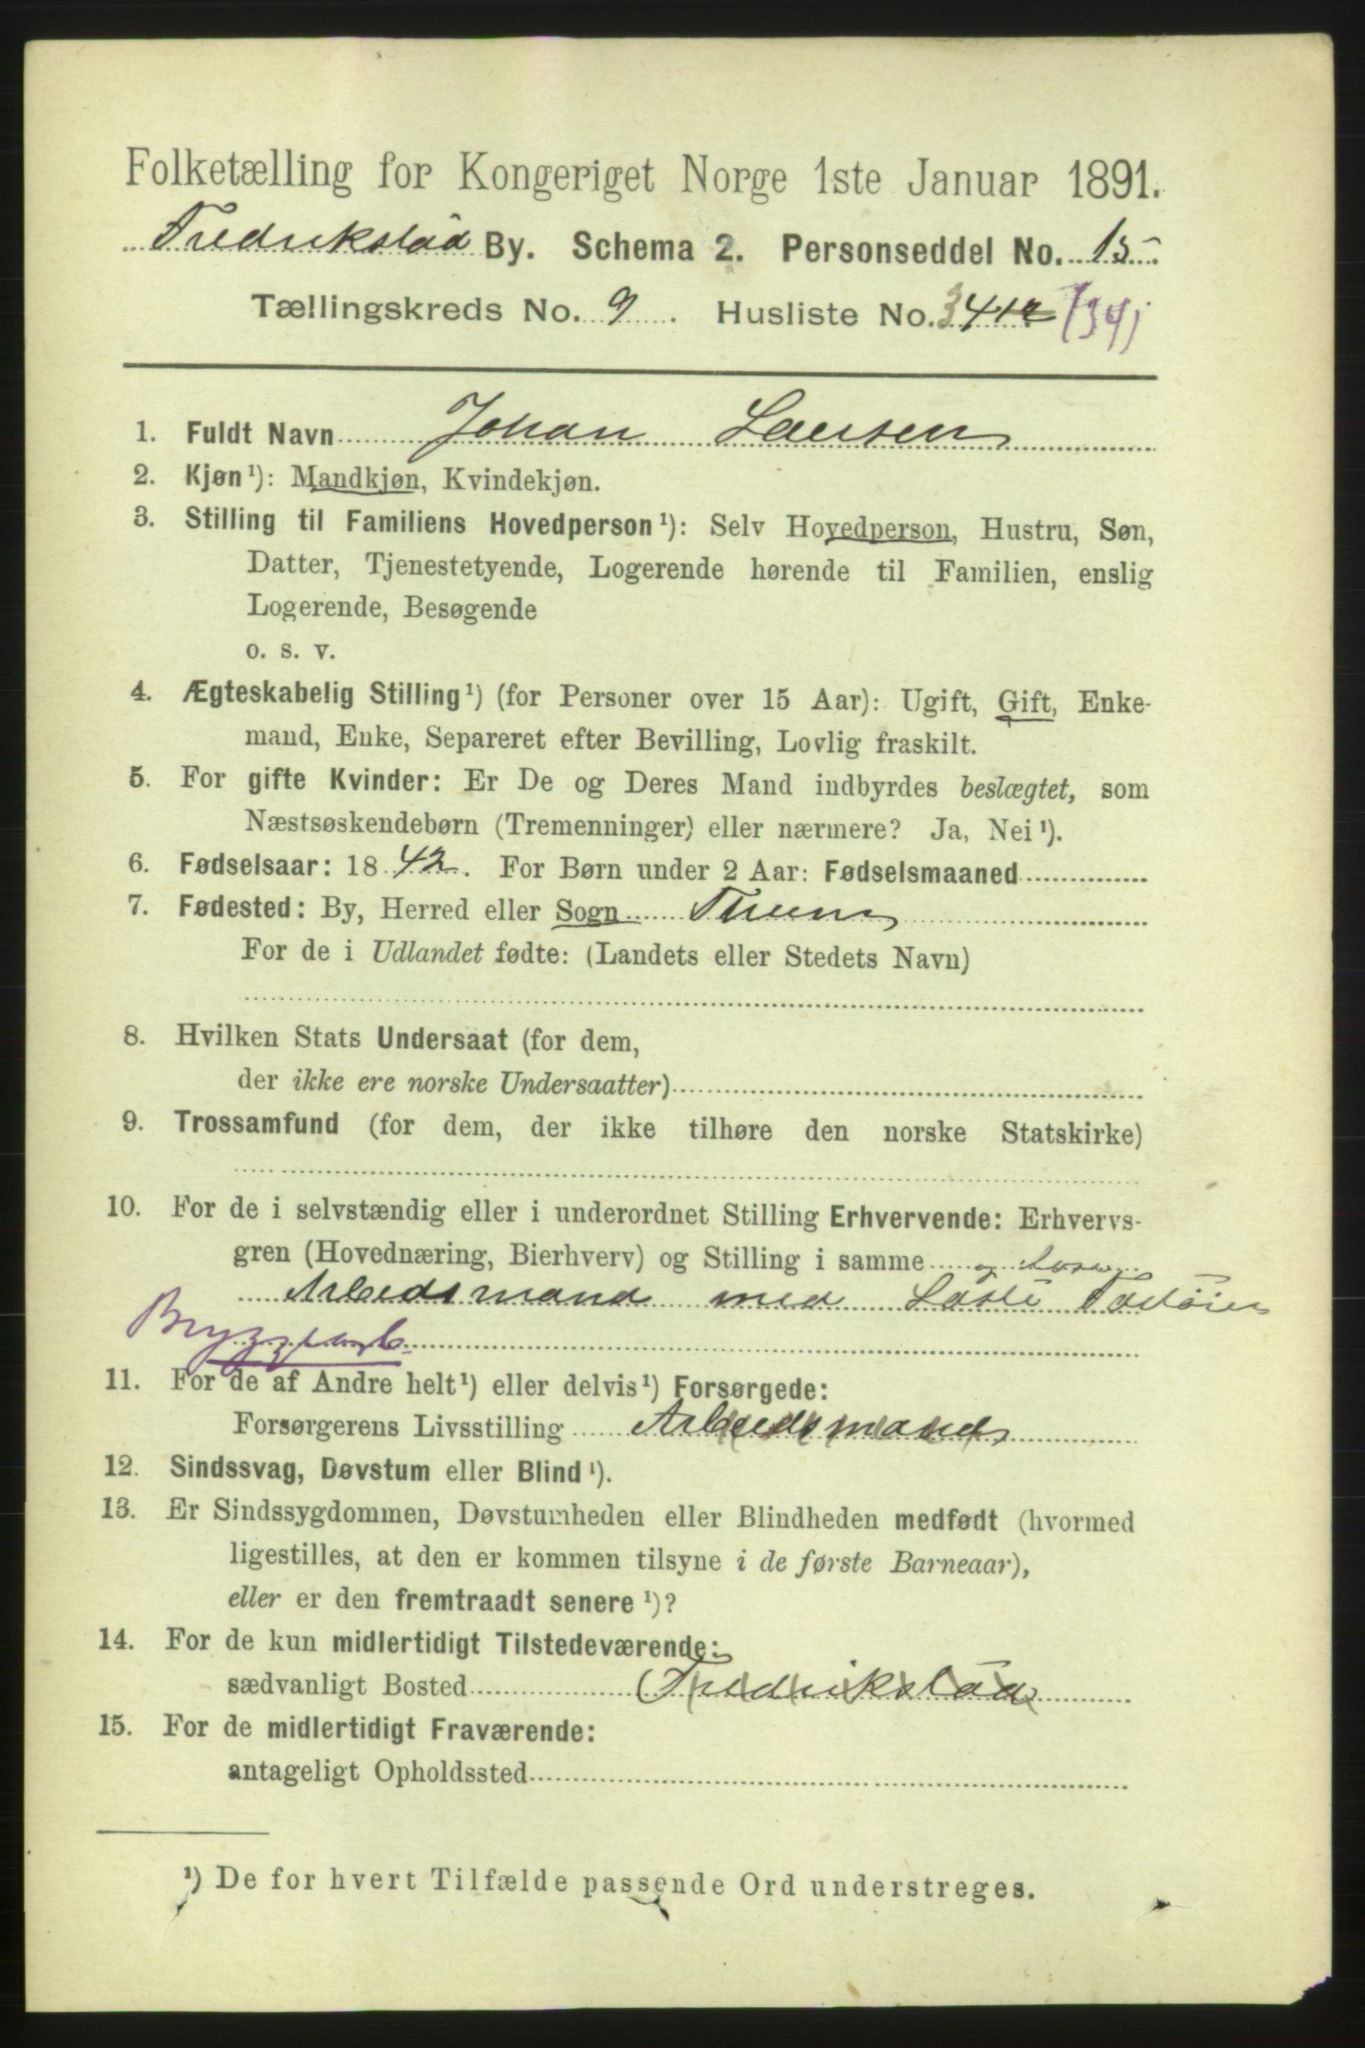 Folketælling for Kongeriget Norge 1ste Januar 1891.
Fredrikstad By. Schema 2. Personseddel No. 15
Tællingskreds No. 9. Husliste No. 34
1. Fuldt Navn Johan Larsen
2. Kjøn¹): Mandkjøn, Kvindekjøn.
3. Stilling til Familiens Hovedperson¹): Selv Hovedperson, Hustru, Søn,
Datter, Tjenestetyende, Logerende hørende til Familien, enslig
Logerende, Besøgende
o. s. v.
4. Ægteskabelig Stilling¹) (for Personer over 15 Aar): Ugift, Gift, Enke-
mand, Enke, Separeret efter Bevilling, Lovlig fraskilt.
5. For gifte Kvinder: Er De og Deres Mand indbyrdes beslægtet, som
Næstsøskendebørn (Tremenninger) eller nærmere? Ja, Nei¹).
6. Fødselsaar: 1842. For Børn under 2 Aar: Fødselsmaaned
7. Fødested: By, Herred eller Sogn Thune
For de i Udlandet fødte: (Landets eller Stedets Navn)
8. Hvilken Stats Undersaat (for dem,
der ikke ere norske Undersaatter)
9. Trossamfund (for dem, der ikke tilhøre den norske Statskirke)
10. For de i selvstændig eller i underordnet Stilling Erhvervende: Erhvervs-
gren (Hovednæring, Bierhverv) og Stilling i samme og Losse
Arbeidsmand med Laste
Bryggearb.
11. For de af Andre helt¹) eller delvis¹) Forsørgede:
Forsørgerens Livsstilling Arbeidsmand
12. Sindssvag, Døvstum eller Blind¹).
13. Er Sindssygdommen, Døvstumheden eller Blindheden medfødt (hvormed
ligestilles, at den er kommen tilsyne i de første Barneaar),
eller er den fremtraadt senere¹)?
14. For de kun midlertidigt Tilstedeværende:
sædvanligt Bosted Fredrikstad
15. For de midlertidigt Fraværende:
antageligt Opholdssted
¹) De for hvert Tilfælde passende Ord understreges.